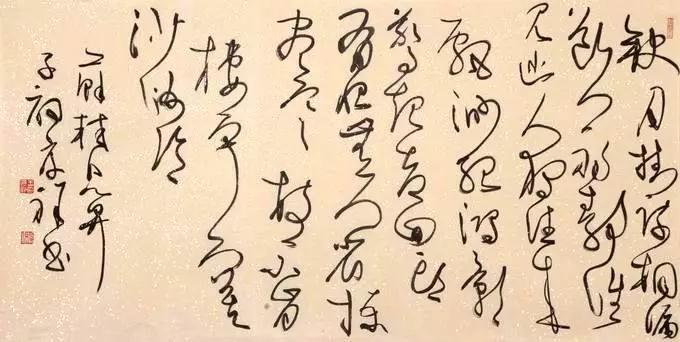 缺月挂疏桐漏
断人初静谁
见幽人独往来
缥缈孤鸿影
惊起却回头
有恨无人省拣
尽寒枝不肯
栖寂寞
沙洲冷